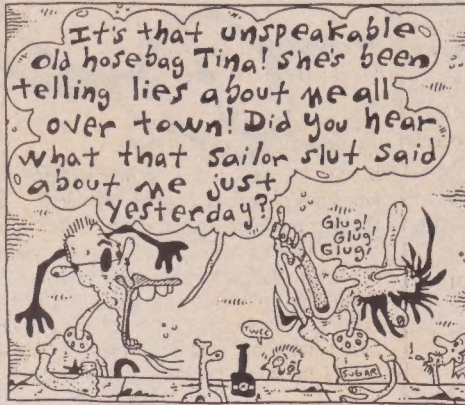 It's that unspeakable
old hosebag Tina! She's been
telling lies about me all
over town! Did you hear
what that sailor slut said
about me just
yesterday?
Glug!
Glug!
Glug!
TWEE
SUGAR